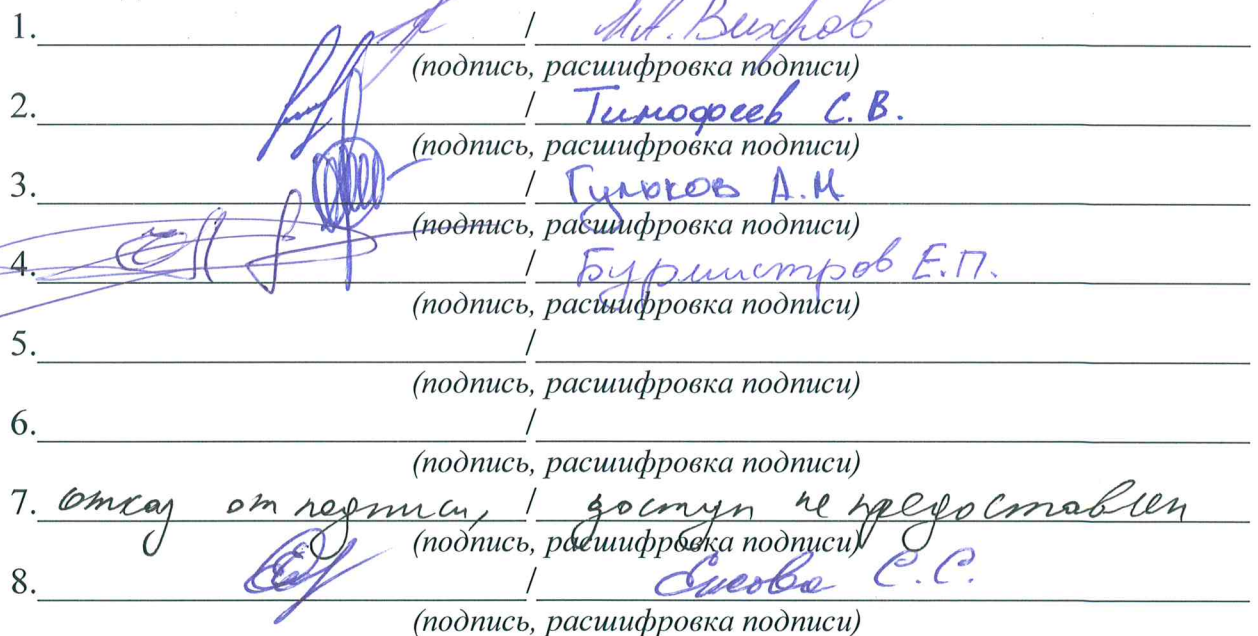 1. / М.А. Вихров
(подпись, расшифровка подписи)
2. / Тимофеев С.В.
(подпись, расшифровка подписи)
3. / Гульков А.М
(подпись, расшифровка подписи)
4. / Бурмистров Е.П.
(подпись, расшифровка подписи)
5. /
(подпись, расшифровка подписи)
6. /
(подпись, расшифровка подписи)
7. отказ от подписи, / доступ не предоставлен
(подпись, расшифровка подписи)
8. / С.С.
(подпись, расшифровка подписи)